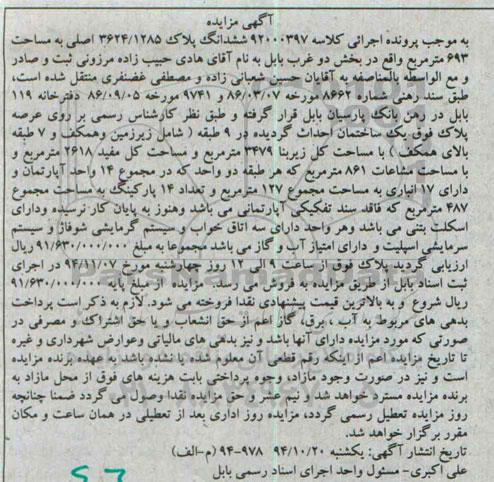 آگهی مزایده
به موجب پرونده اجرائی کلاسه ۹۲۰۰۰۳۹۷ ششدانگ پلاک ۳۶۲۴/۱۲۸۵ اصلی به مساحت
۶۹۳ مترمربع واقع در بخش دو غرب بابل به نام آقای هادی حبیب زاده مرزونی ثبت و صادر
و مع الواسطه بالمناصفه به آقایان حسین شعبانی زاده و مصطفی غضنفری منتقل شده است،
طبق سند رهنی شماره ۸۶۶۲ مورخه ۸۶/۰۳/۰۷ و ۹۷۴۱ مورخه ۸۶/۰۹/۰۵ دفترخانه ۱۱۹
بابل در رهن بانک پارسیان بابل قرار گرفته و طبق نظر کارشناس رسمی بر روی عرصه
پلاک فوق یک ساختمان احداث گردیده در ۹ طبقه ( شامل زیرزمین وهمکف و ۷ طبقه
بالای همکف ) با مساحت کل زیربنا ۳۴۷۹ مترمربع و مساحت کل مفید ۲۶۱۸ مترمربع و
با مساحت مشاعات ۸۶۱ مترمربع که هر طبقه دو واحد که در مجموع ۱۴ واحد آپارتمان و
دارای ۱۷ انباری به مساحت مجموع ۱۲۷ مترمربع و تعداد ۱۴ پارکینگ به مساحت مجموع
۴۸۷ مترمربع که فاقد سند تفکیکی آپارتمانی می باشد وهنوز به پایان کار نرسیده ودارای
اسکلت بتنی می باشد وهر واحد دارای سه اتاق خواب و سیستم گرمایشی شوفاژ و سیستم
سرمایشی اسپلیت و دارای امتیاز آب و گاز می باشد مجموعا به مبلغ ۹۱/۶۳۰/۰۰۰/۰۰۰ ریال
ارزیابی گردید پلاک فوق از ساعت ۹ الی ۱۲ روز چهارشنبه مورخ ۹۴/۱۱/۰۷ در اجرای
ثبت اسناد بابل از طریق مزایده به فروش می رسد. مزایده از مبلغ پایه ۹۱/۶۳۰/۰۰۰/۰۰۰
ریال شروع و به بالاترین قیمت پیشنهادی نقدا فروخته می شود. لازم به ذکر است پرداخت
بدهی های مربوط به آب ، برق، گاز اعم از حق انشعاب و یا حق اشتراک و مصرفی در
صورتی که مورد مزایده دارای آنها باشد و نیز بدهی های مالیاتی وعوارض شهرداری و غیره
تا تاریخ مزایده اعم از اینکه رقم قطعی آن معلوم شده یا نشده باشد به عهده برنده مزایده
است و نیز در صورت وجود مازاد، وجوه پرداختی بابت هزینه های فوق از محل مازاد به
برنده مزایده مسترد خواهد شد و نیم عشر و حق مزایده نقدا وصول می گردد ضمنا چنانچه
روز مزایده تعطیل رسمی گردد، مزایده روز اداری بعد از تعطیلی در همان ساعت و مکان
مقرر برگزار خواهد شد.
تاریخ انتشار آگهی: یکشنبه ۹۴/۱۰/۲۰ ۹۷۸-۹۴ (م-الف)
علی اکبری- مسئول واحد اجرای اسناد رسمی بابل